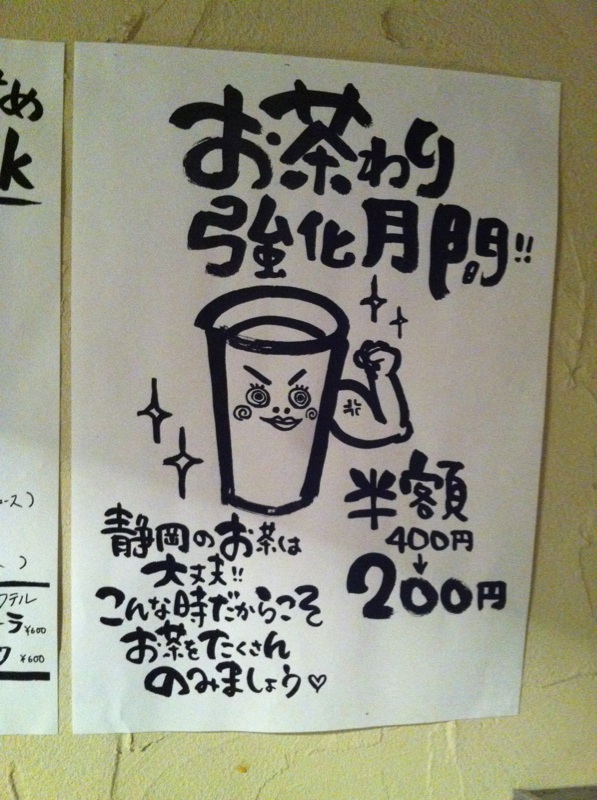 お茶わり
強化月間!!
半額
400円
↓
200円
静岡のお茶は
大丈夫!!
こんな時だからこそ
お茶をたくさん
のみましょう♡
め
k
ース)
)
クテル
ーラ ¥600
ク ¥600